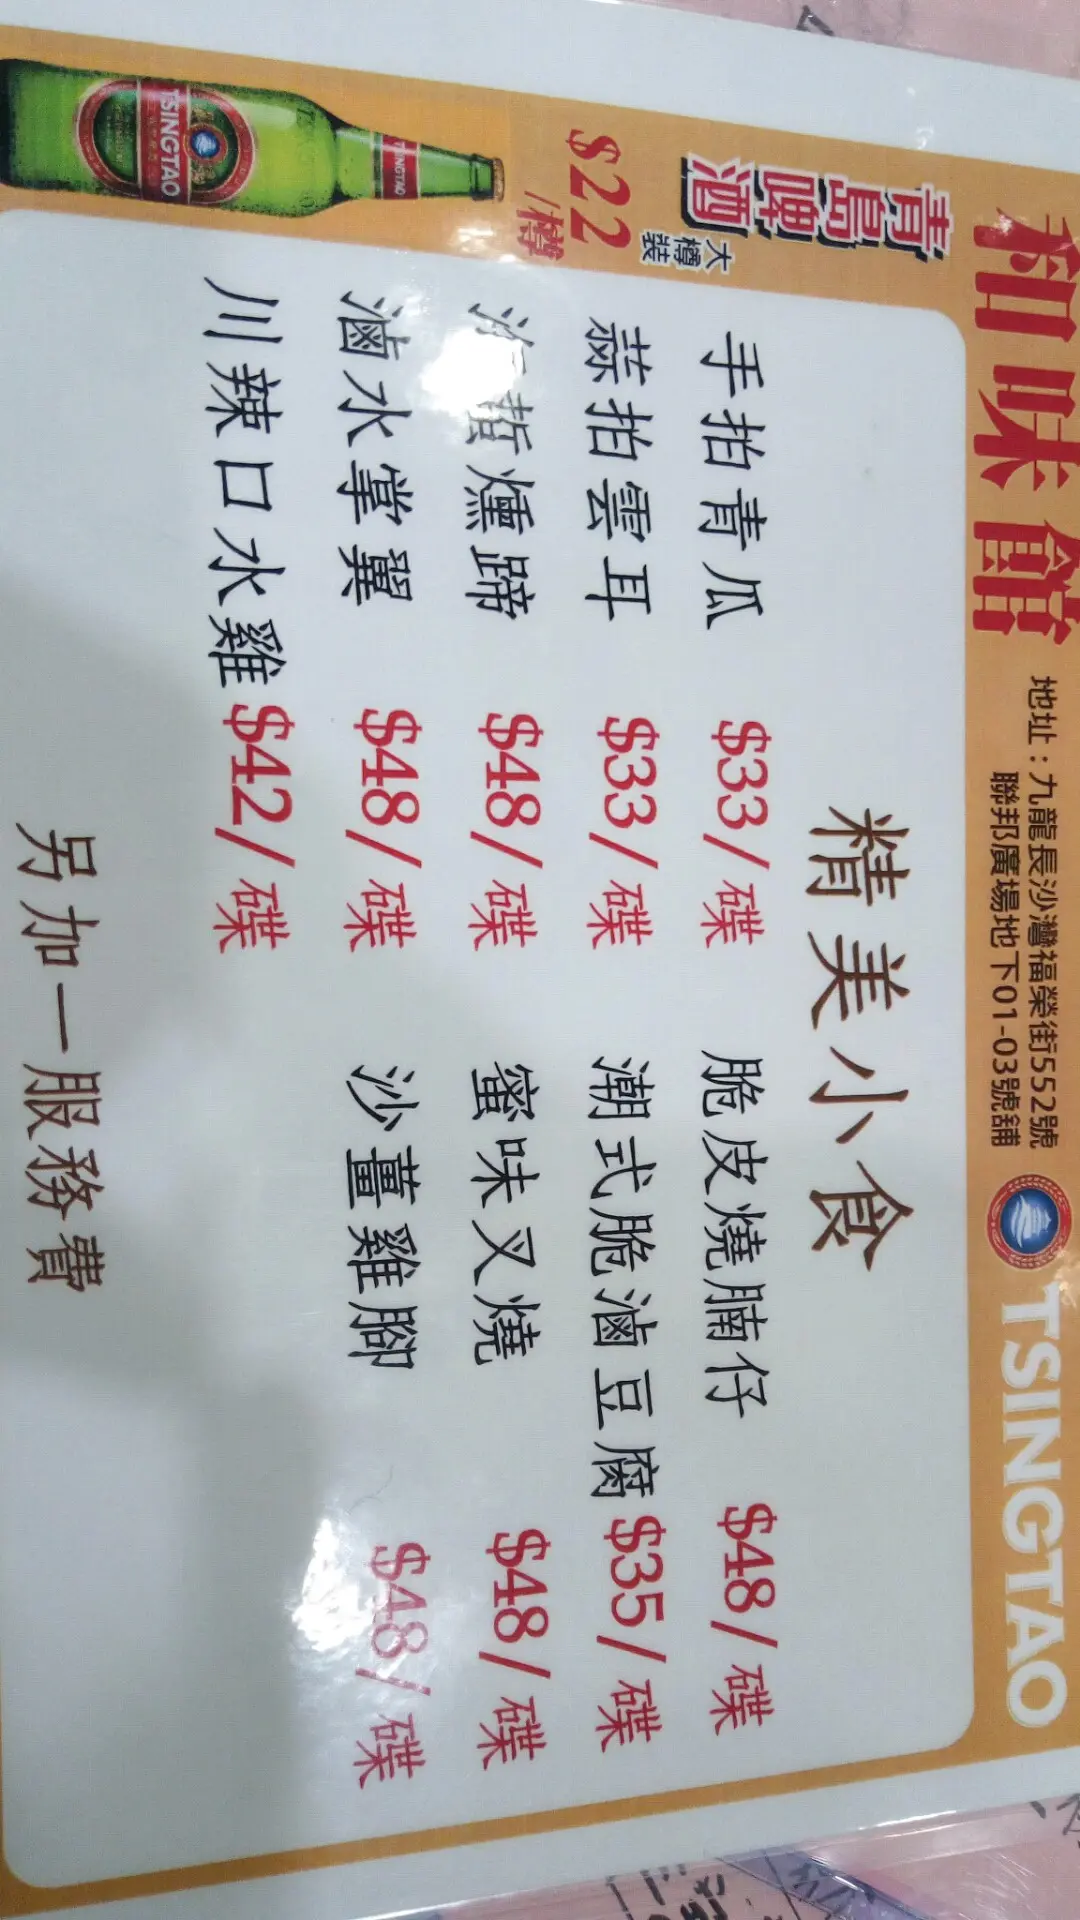 和味館
地址：九龍長沙灣福榮街552號
聯邦廣場地下01-03號舖
TSINGTAO
青島啤酒
大樽裝
$22/樽
TSINGTAO
TSINGTAO
精美小食
手拍青瓜 $33/碟
脆皮燒腩仔 $48/碟
蒜拍雲耳 $33/碟
潮式脆滷豆腐 $35/碟
蜇燻蹄 $48/碟
蜜味叉燒 $48/碟
滷水掌翼 $48/碟
沙薑雞腳 $48/碟
川辣口水雞 $42/碟
另加一服務費